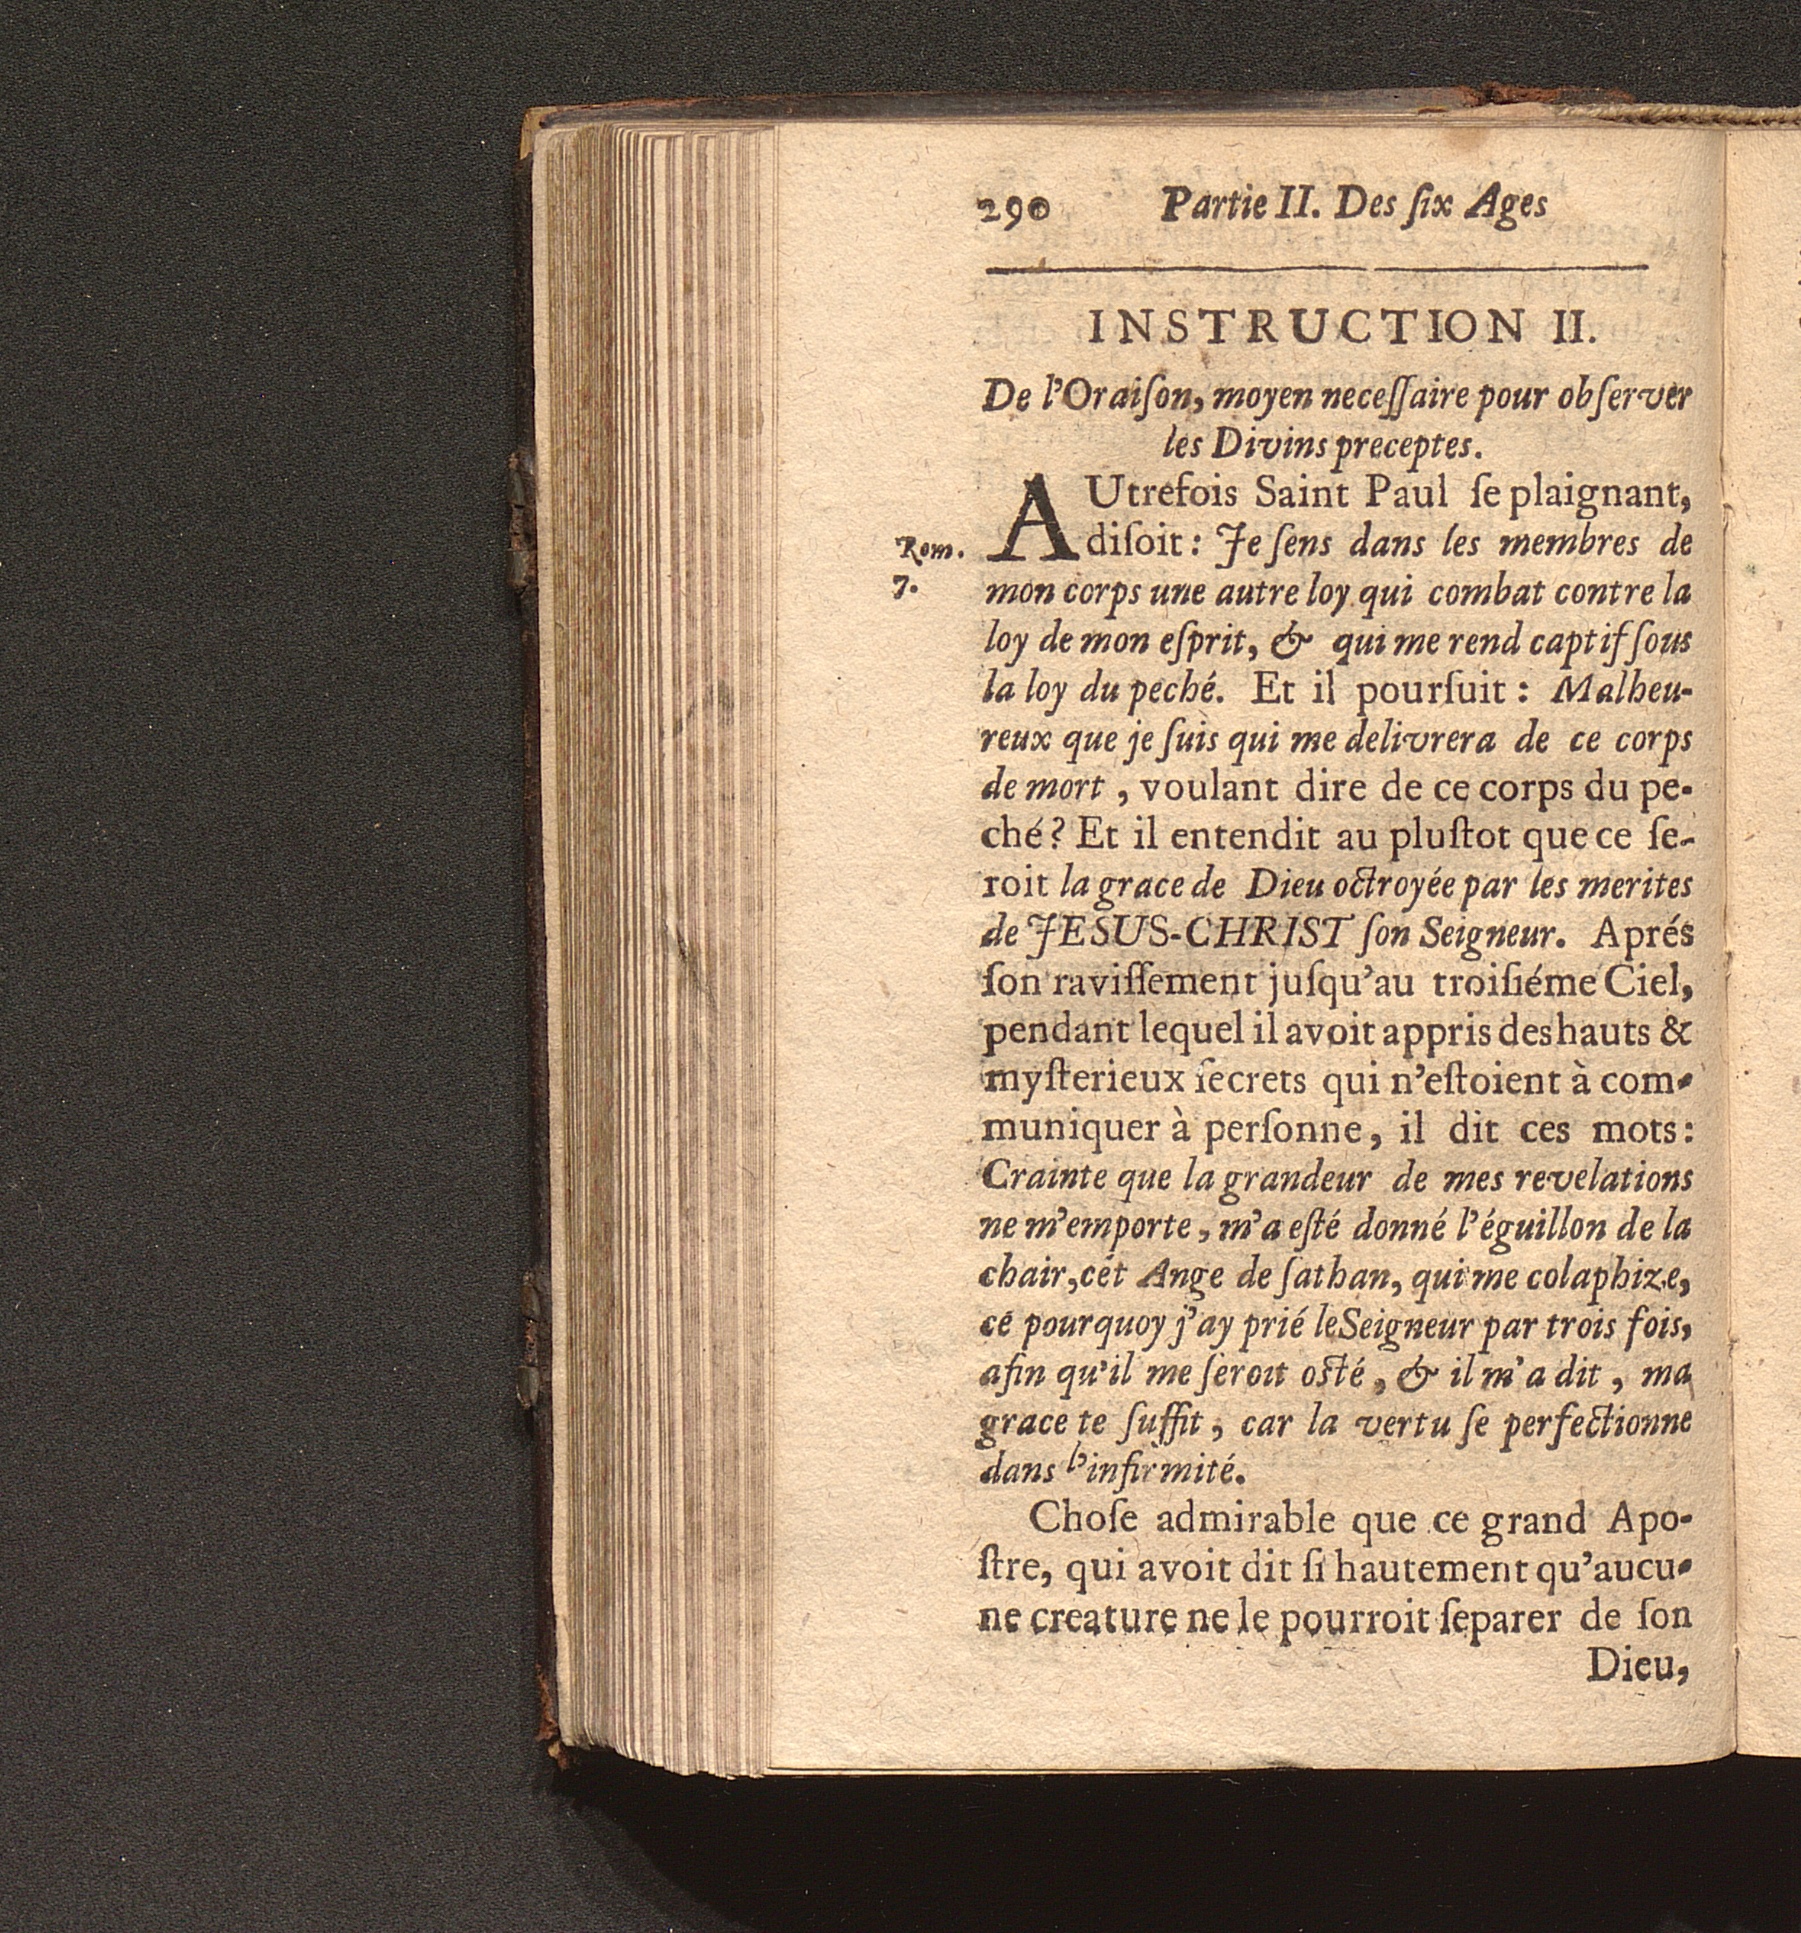 290 Partie II. Des ſix Ages
INSTRUCTION II.
De l'Oraiſon, moyen neceſſaire pour obſerver
les Divins preceptes.
AUtrefois Saint Paul ſe plaignant,
Rom. diſoit: Je ſens dans les membres de
7. mon corps une autre loy qui combat contre la
loy de mon eſprit, & qui me rend captif ſous
la loy du peché. Et il pourſuit: Malheu-
reux que je ſuis qui me delivrera de ce corps
de mort, voulant dire de ce corps du pe-
ché? Et il entendit au pluſtot que ce ſe-
roit la grace de Dieu octroyée par les merites
de JESUS-CHRIST ſon Seigneur. Aprés
ſon raviſſement juſqu'au troiſiéme Ciel,
pendant lequel il avoit appris des hauts &
myſterieux ſecrets qui n'eſtoient à com-
muniquer à perſonne, il dit ces mots:
Crainte que la grandeur de mes revelations
ne m'emporte, m'a eſté donné l'éguillon de la
chair, cét Ange de ſathan, qui me colaphize,
ce pourquoy j'ay prié le Seigneur par trois fois,
afin qu'il me ſeroit oſté, & il m'a dit, ma
grace te ſuffit, car la vertu ſe perfectionne
dans l'infirmité.
Choſe admirable que ce grand Apo-
ſtre, qui avoit dit ſi hautement qu'aucu-
ne creature ne le pourroit ſeparer de ſon
Dieu,